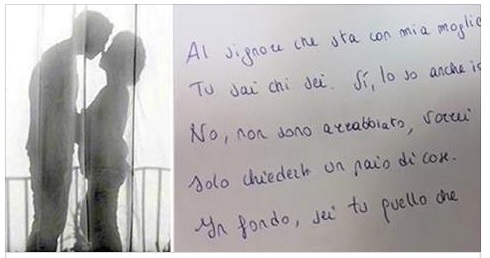 Al signore che sta con mia moglie
Tu sai chi sei. Sí, lo so anche io
No, non sono arrabbiato, vorrei
solo chiederti un paio di cose.
In fondo, sei tu quello che